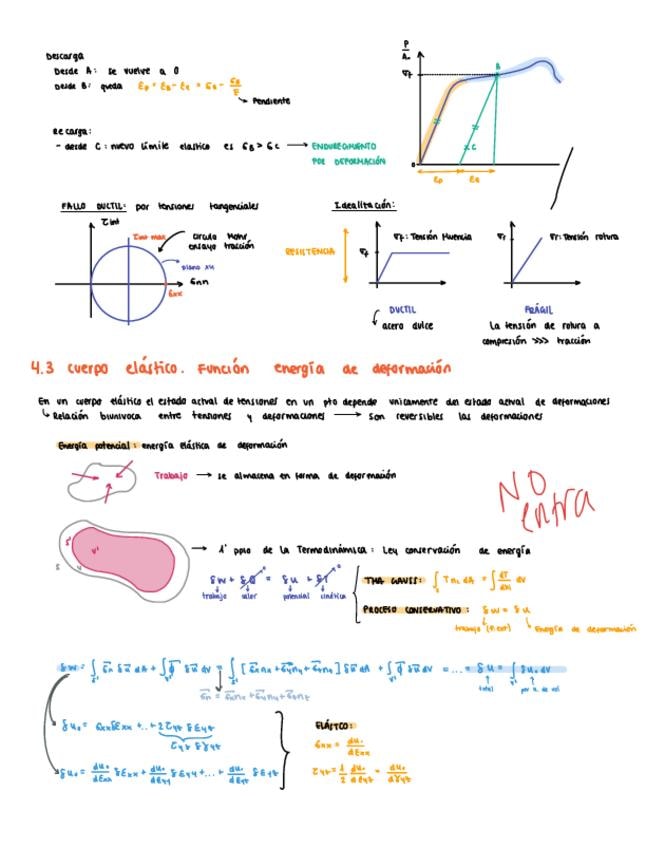 Descarga
Desde A: se vuelve a 0
Desde B: queda εp = εB - εe = εB - σB/E
Pendiente
Recarga:
- desde C: nuevo límite elastico es σB > σc → ENDURECIMIENTO
POR DEFORMACIÓN
P/A0
σf
B
C
0
εp εe
FALLO DUCTIL: por tensiones tangenciales
τint
τint max
circulo Mohr
ensayo tracción
plano xy
σnn
σxx
Idealización:
RESISTENCIA
σf
σf: Tensión Fluencia
DUCTIL
acero dulce
σr
σr: Tensión rotura
FRÁGIL
La tensión de rotura a
compresión >>> tracción
4.3 cuerpo elástico. Función energía de deformación
En un cuerpo elástico el estado actual de tensiones en un pto depende unicamente del estado actual de deformaciones
Relación biunívoca entre tensiones y deformaciones → Son reversibles las deformaciones
Energía potencial: energía elástica de deformación
Trabajo → se almacena en forma de deformación
NO
entra
S' V' S V
→ 1º ppio de la Termodinámica: Ley conservación de energía
δW + δQ = δU + δT
trabajo calor potencial cinética
TMA GAUSS: ∫ T ni dA = ∫ dT/dxi dV
PROCESO CONSERVATIVO: δW = δU
trabajo (F. ext) Energía de deformación
δW = ∫S' σn δu dA + ∫V' φ δu dV = ∫S' [σx nx + σy ny + σz nz] δu dA + ∫V' φ δu dV = ... = δU = ∫V' δu0 dV
σn = σx nx + σy ny + σz nz
total
por u. de vol
δu0 = σxx δεxx + ... + 2τyz δεyz
τyz δγyz
δu0 = du0/dεxx δεxx + du0/dεyy δεyy + ... + du0/dεyz δεyz
ELÁSTCO:
σxx = du0/dεxx
τyz = 1/2 du0/dεyz = du0/dγyz